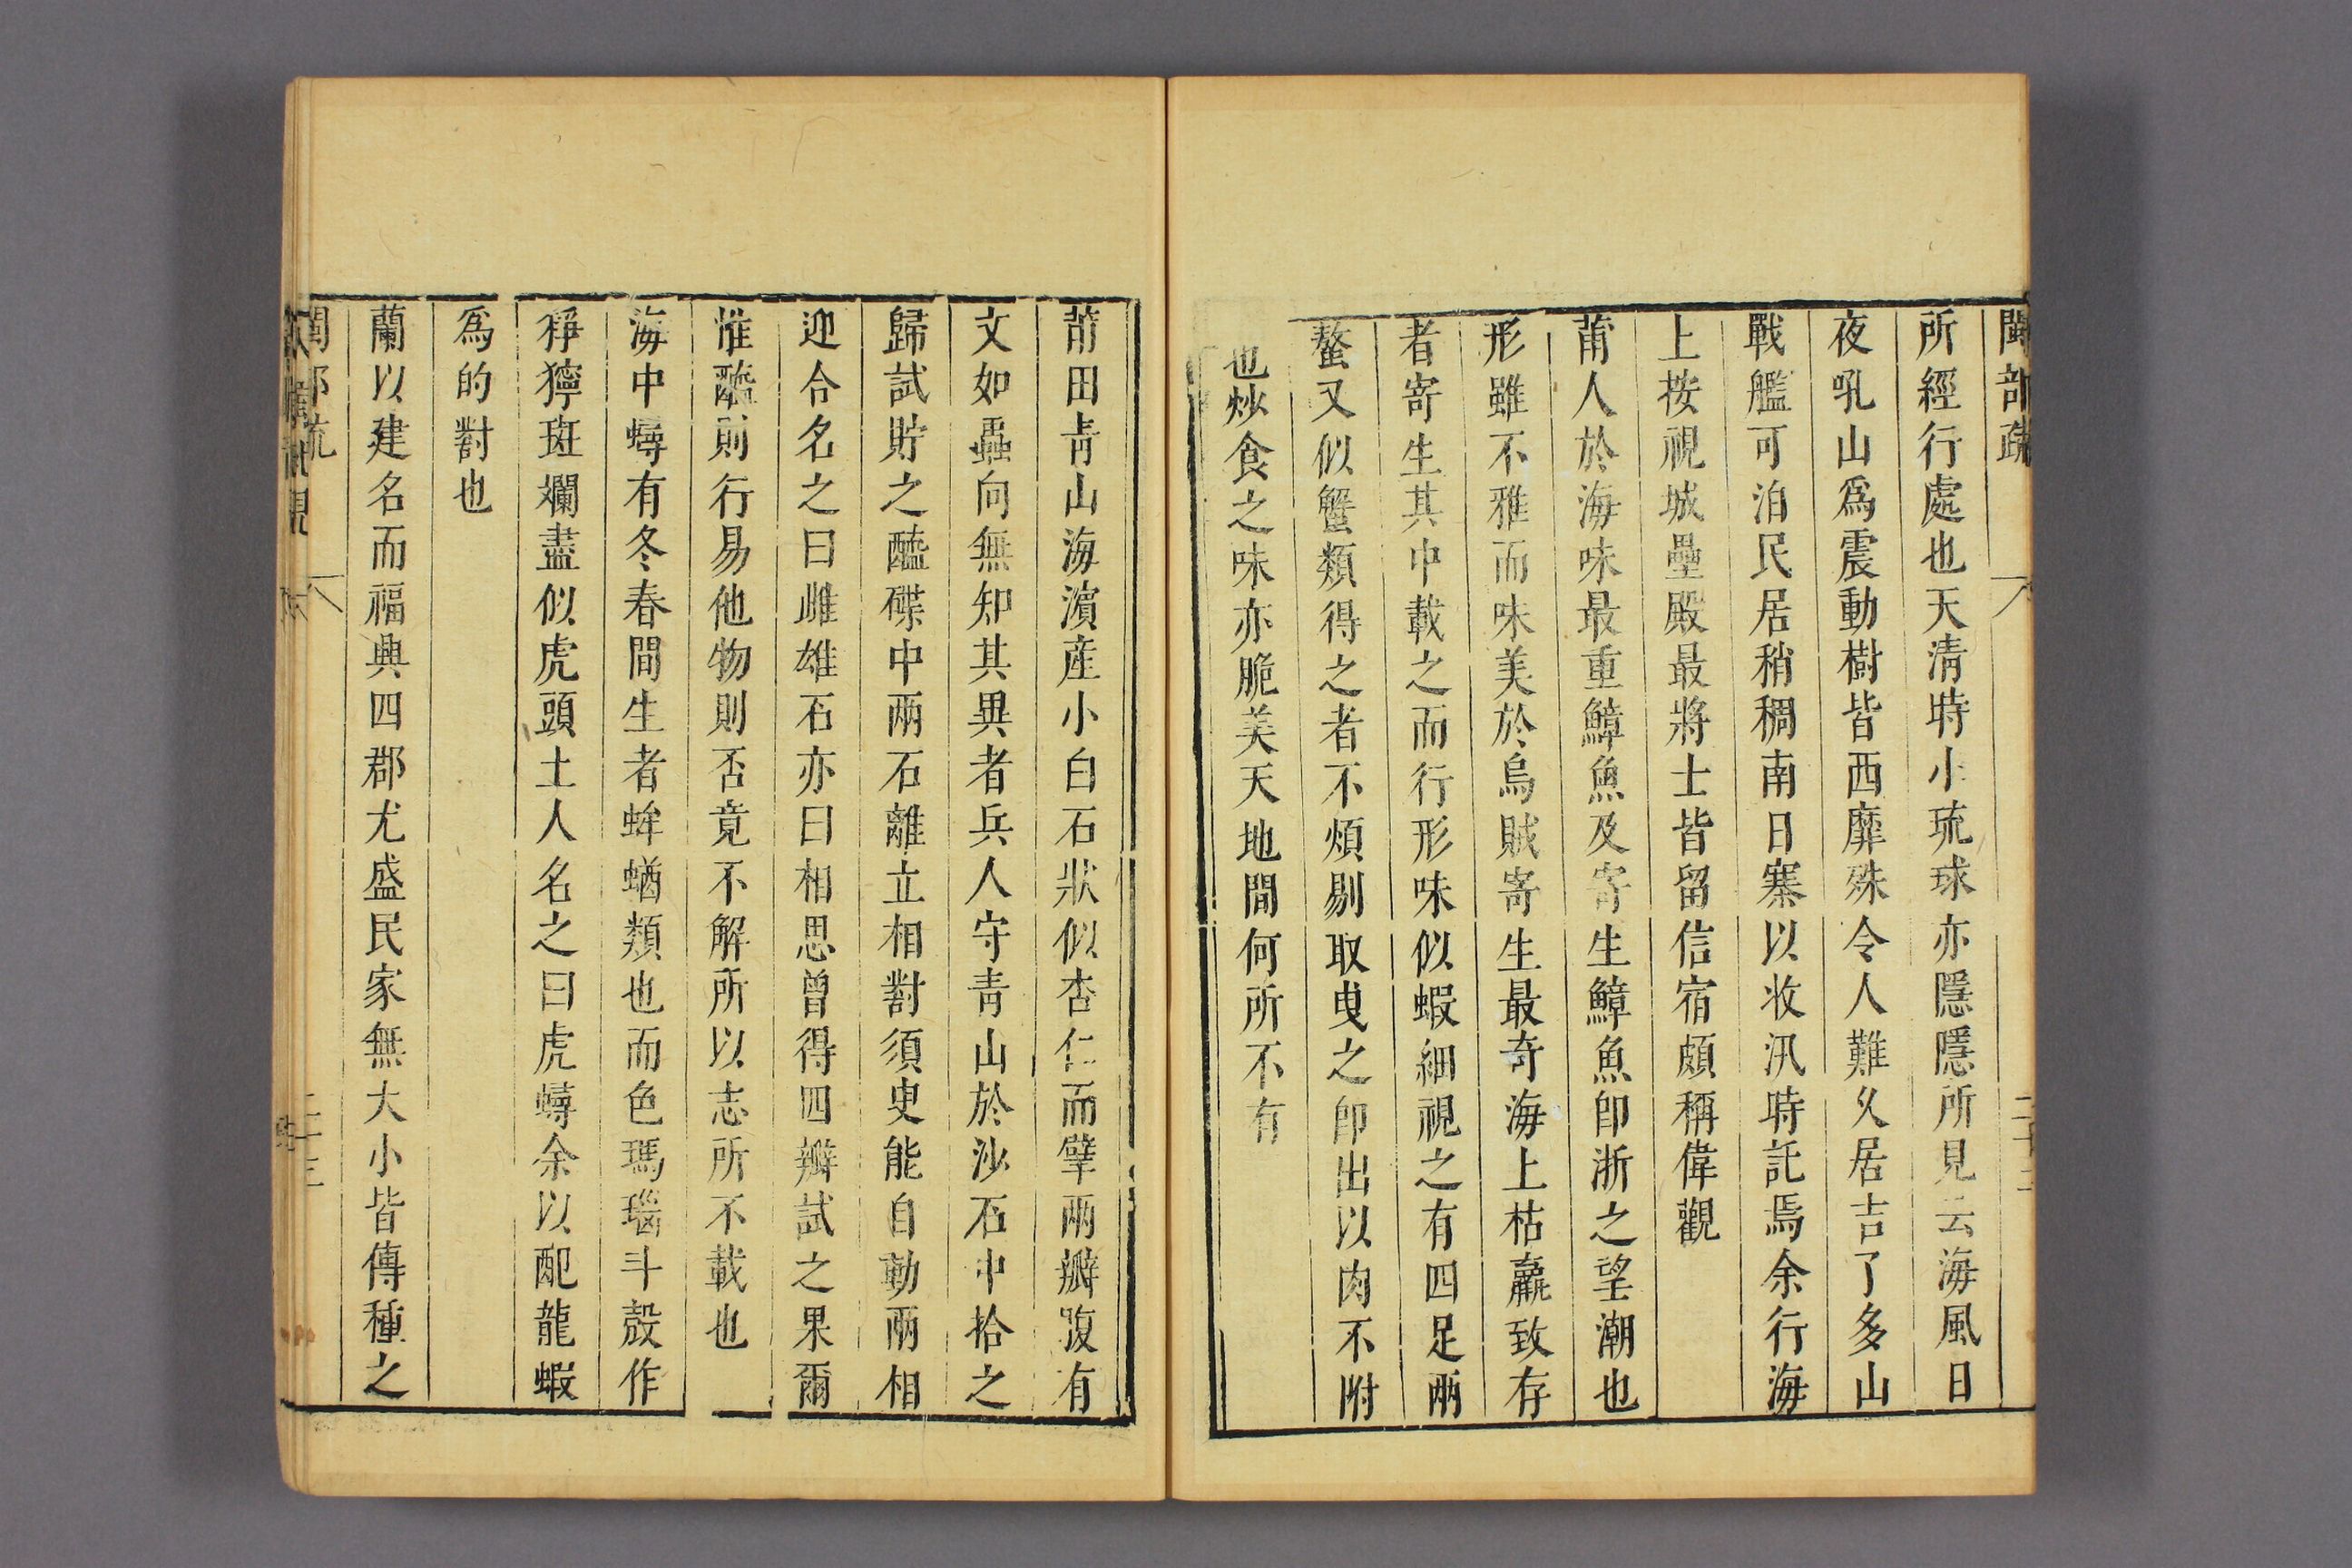 閩部疏
所經行處也天淸時小琉球亦隱隱所見云海風日
夜吼山爲震動樹皆西靡殊令人難久居吉了多山
戰艦可泊民居稍稠南日寨以收汛時託焉余行海
上按視城壘殿最將士皆留信宿頗稱偉觀
莆人於海味最重鱆魚及寄生鱆魚卽浙之望潮也
形雖不雅而味美於烏賊寄生最奇海上枯蠃致存
者寄生其中載之而行形味似蝦細視之有四足兩
螯又似蟹類得之者不煩剔取曳之卽出以肉不附
也炒食之味亦脆美天地間何所不有
莆田青山海濱產小白石狀似杏仁而擘兩瓣腹有
文如蟲向無知其異者兵人守青山於沙石中拾之
歸試貯之醯碟中兩石離立相對須臾能自動兩相
迎合名之曰雌雄石亦曰相思曾得四瓣試之果爾
惟醯則行易他物則否竟不解所以志所不載也
海中蟳有冬春間生者蝤類也而色瑪瑙斗殼作
猙獰斑斕盡似虎頭土人名之曰虎蟳余以配龍蝦
爲的對也
蘭以建名而福興四郡尤盛民家無大小皆傳種之
閩部疏